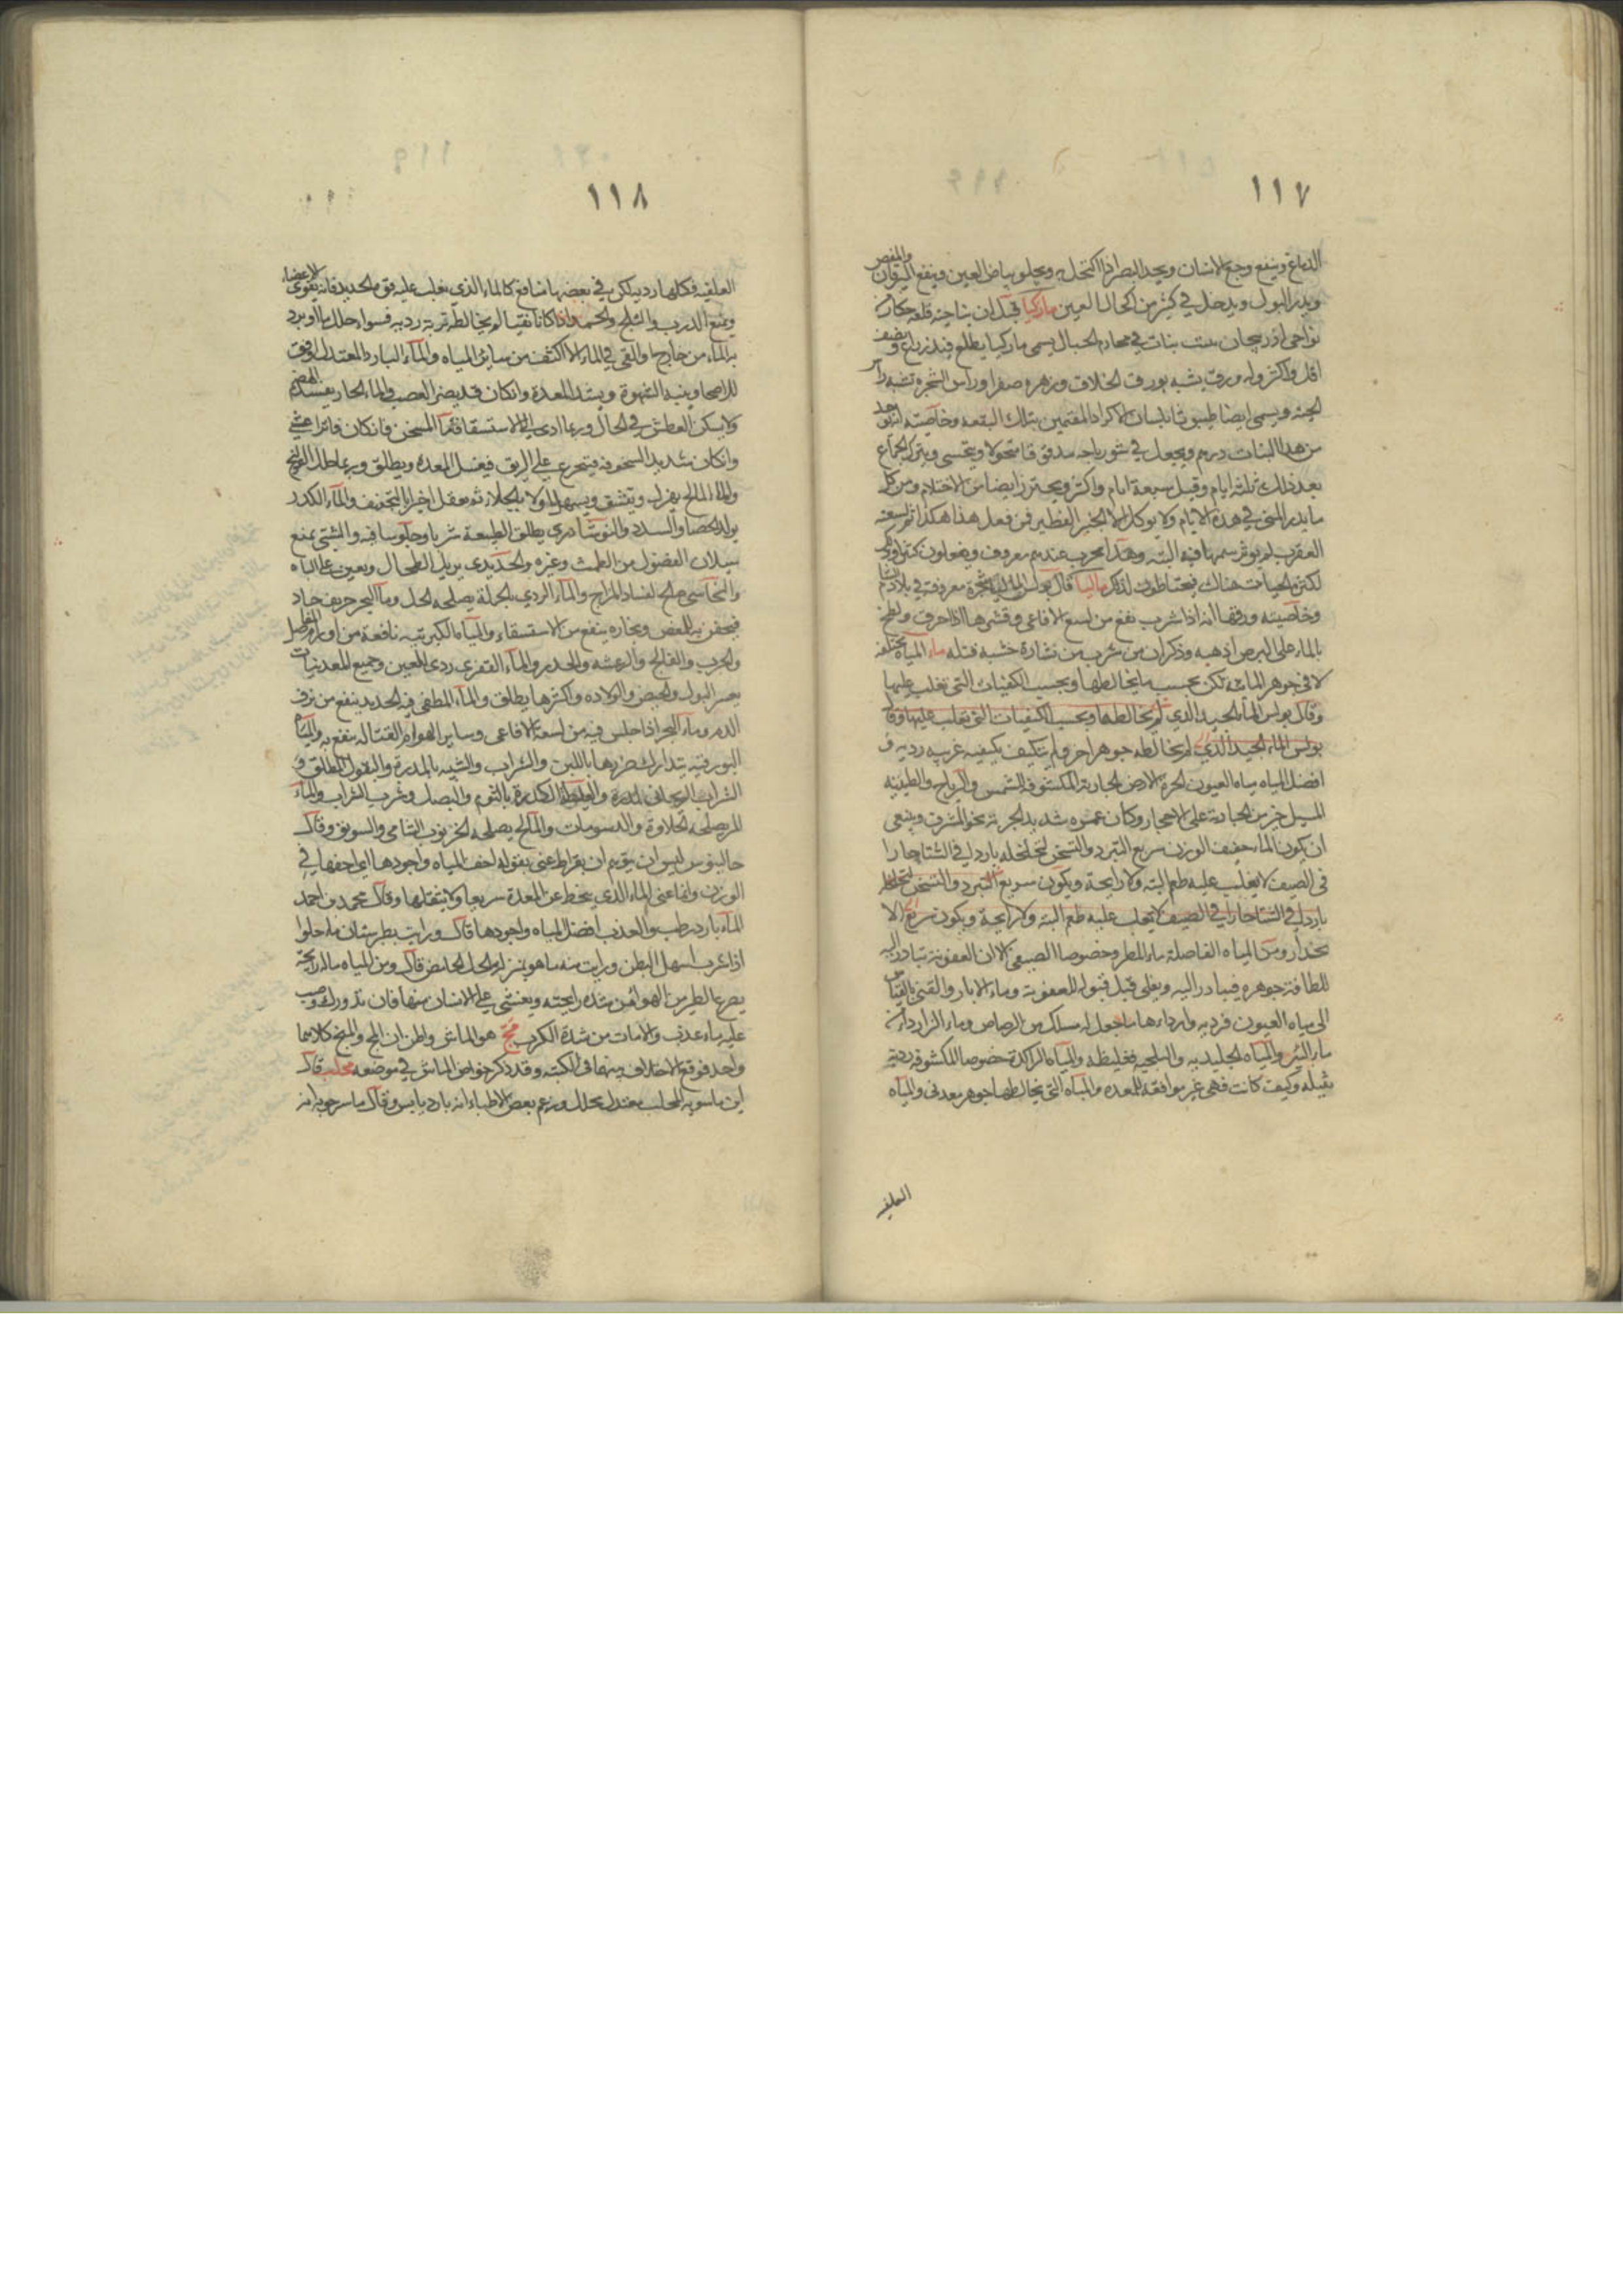 ١١٧
الدماغ وينفع وجع الاسنان ويحد البصر اذا اكتحل به ويجلو بياض العين وينفع اليرقان والمغص
ويدر البول ويدخل في كثير من اكحال العين ماركيا قيل ان بناحية قلعة من
نواحي اذربيجان ينبت نبات في الجبال يسمى ماركيا يطلع قيد ذراع ونصف
اقل واكثر وله ورق يشبه بورق الخلاف وزهره صفرا وراس الشجرة تشبه راس
الحية ويسمى ايضا بلسان الاكراد المقيمين بتلك البقعة وخاصيته انه يوخذ
من هذا النبات درهم ويجعل في شورباجه مدقوقا منخولا ويتحسى ويترك الجماع
بعد ذلك ثلثه ايام وقيل سبعة ايام واكثر ويحترز ايضا من الاحتلام ومن كل
ما يدر المني في هذه الايام ولا يوكل الا الخبز الفطير فمن فعل هذا هكذا ثم لسعته
العقرب لم يوثر سمها فيه البته وهذا مجرب عندهم معروف ويفعلون كثيرا
لكثرة الحيات هناك فيحتاطون لذلك ماليا قال بولس انها شجرة معروفة في بلاد
وخاصيته ورقها انه اذا شرب نفع من لسع الافاعي وقشرها اذا احرق ولطخ
بالماء على البرص اذهبه وذكر ان من شرب من نشارة خشبه قتله ماء المياه مختلفه
لا في جوهر المائيه لكن بحسب ما يخالطها وبحسب الكيفيات التي تغلب عليها
وقال بولس الماء الجيد الذي لم يخالطها وبحسب الكيفيات التي تغلب عليها وقال
بولس الماء الجيد الذي لم يخالطه جوهر اخر ولم يتكيف بكيفيه غريبه رديه و
افضل المياه مياه العيون الحرة الارض الجارية المكشوفة الشمس والرياح والطينيه
المسيل خير من الجارية على الاحجار وكان غمره شديد الجرية نحو المشرق وينبغي
ان يكون الماء خفيف الوزن سريع التبرد والتسخن لتخلخله باردا في الشتا حارا
في الصيف لا يغلب عليه طعم البته ولا رايحة ويكون سريع التبرد والتسخن لتخلخله
باردا في الشتا حارا في الصيف لا يغلب عليه طعم البته ولا رايحة ويكون سريع الا
نحدار ومن المياه الفاضلة ماء المطر وخصوصا الصيفي الا ان العفونة تبادر اليه
للطافة جوهره فيبادر اليه ويغلى قبل قبوله للعفونة وماء الابار والقني بالقياس
الى مياه العيون فرديه واردءها ما جعل له مسلك من الرصاص وماء النز اردا من
ماء البئر والمياه الجليديه والثلجيه فغليظه والمياه الراكدة خصوصا المكشوفة رديه
ثقيله وكيف كانت فهي غير موافقة للمعده والمياه التي يخالطها جوهر معدني والمياه
العلقيه
١١٨
العلقيه فكلها رديه لكن في بعضها منافع كالماء الذي يغلب عليه قوة الحديد فانه يقوي الاعضاء
ويمنع الذرب والثلج والجمد اذا كانا نقيا لم يخالط تربة رديه فسواء حلل ماء او برد
به الماء من خارج والقي في الماء الا اكثف من سائر المياه والماء البارد المعتدل اوفق
للاصحا وينبه الشهوة ويشد المعدة وان كان قد يضر العصب والماء الحار يفسد الهضم
ولا يسكن العطش في الحال وربما ادى الى الاستسقا فاما المسخن فان كان فاترا غثى
وان كان شديد السخونة فيتجرع على الريق فيغسل المعدة ويطلق وربما حلل القولنج
والماء المالح يهزل وينشف ويسهل اولا بالجلا ثم يعقل اخيرا بالتجفيف والماء الكدر
يولد الحصا والسدد والنوشادري يطلق الطبيعة شربا وجلوسا فيه والشبي يمنع
سيلان الفضول من الطمث وغيره والحديدي يزيل الطحال ويعين على الباه
والنحاسي صالح لفساد المزاج والماء الردي بالجملة يصلحه الخل وماء البحر حريف حاد
فيحقن به للمغص وبخاره ينفع من الاستسقاء والمياه الكبريتيه نافعة من اورام المفاصل
والجرب والفالج والرعشه والخدر والماء القفري ردي للعين وجميع المعدنيات
يعسر البول والحيض والولاده واكثرها يطلق والماء المطفى فيه الحديد ينفع من نزف
الدم وماء البحر اذا جلس فيه من لسعة الافاعي وساير الهوام القتاله ينفع به والمياه
البورقيه يتدارك ضررها باللبن والشراب والشبيه بالمدرة والبقول المطلقة و
الشراب الريحاني والغليظة الكدرة بالثوم والبصل وشرب الشراب والماء
المر يصلحه الحلاوة والدسومات والمالح يصلحه الخرنوب الشامي والسويق وقال
جالينوس ليس ان يتوهم ان بقراط عنى بقوله اخف المياه واجودها اي اخفها في
الوزن وانما عنى الماء الذي ينحط عن المعدة سريعا ولا يثقلها وقال محمد بن احمد
الماء بارد رطب والعذب افضل المياه واجودها قال ورايت بطبرستان ماء حلوا
اذا شرب اسهل البطن ورايت منه ما هو بمنزلة الخل الحامض قال ومن المياه ماله رايحة
يصرع الطير من الهوا من شدة رايحته ويغشى على الانسان منها فان تدورك وصب
عليه ماء عذب والا مات من شدة الكرب مج هو الماش واظن ان المج والمنج كلاهما
واحد فوقع الاختلاف بينهما في الكتبه وقد ذكر خواص الماش في موضعه محلب قال
ابن ماسويه المحلب معتدل محلل وزعم بعض الاطباء انه بارد يابس وقال ماسرجويه انه